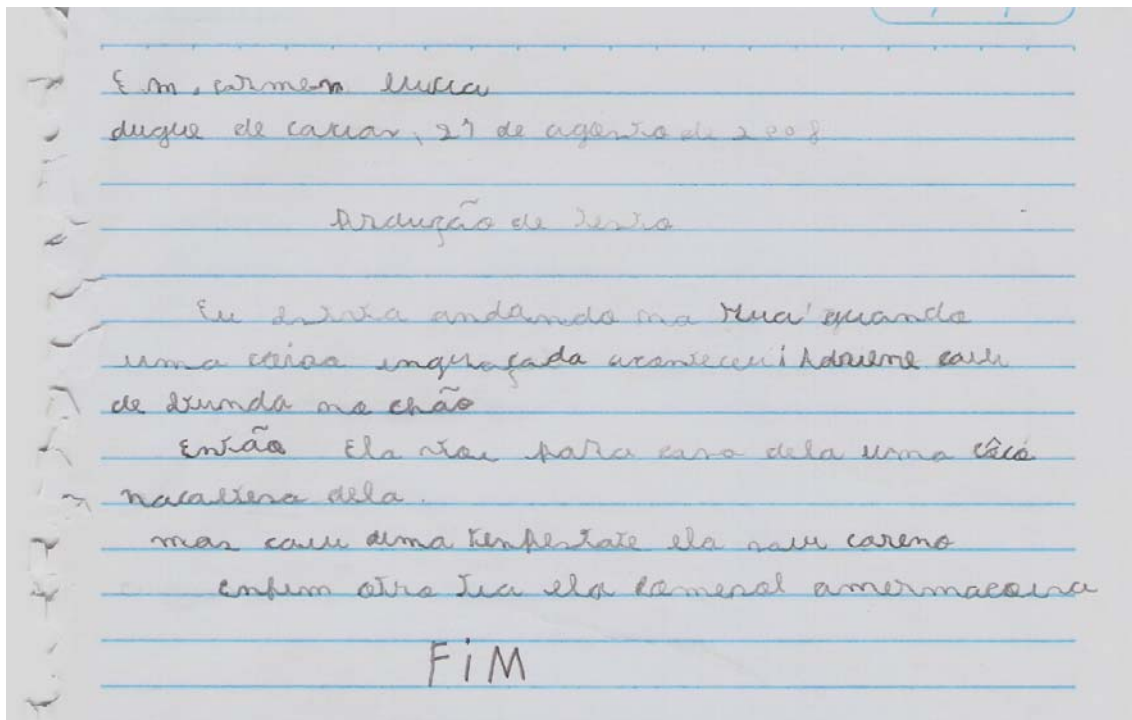 E.m. carmem lucia
duque de caxias, 27 de agosto de 2008
produção de testo
Eu estava andando na Rua quando
uma coisa ingraçada aconteceu! Adriene caiu
de bunda no chão
Então Ela para casa dela uma côcô
nacabesa dela.
mas caiu uma tenpestate ela saiu careno
enfim otro tia ela comesol amermacoisa
FiM